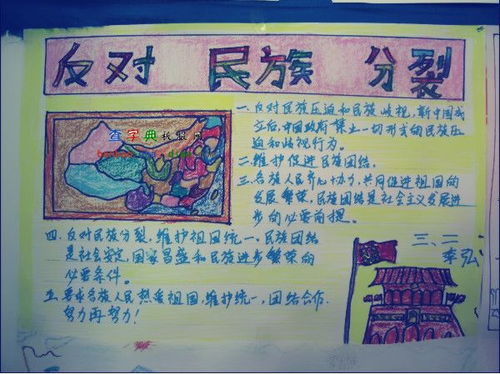 反对 民族 分裂
一、反对民族压迫和民族歧视,新中国成
立后,中国政府禁止一切形式的民族压
迫和歧视行为。
二、维护促进民族团结。
三、各族人民齐心协力,共同促进祖国的
发展繁荣,民族团结是社会主义发展进
步的必要前提。
查字典
四、反对民族分裂,维护祖国统一,民族团结
是社会安定,国家昌盛和民族进步繁荣的
必要条件。
五、要求各族人民热爱祖国,维护统一,团结合作.
努力再努力!
三、二
李弘